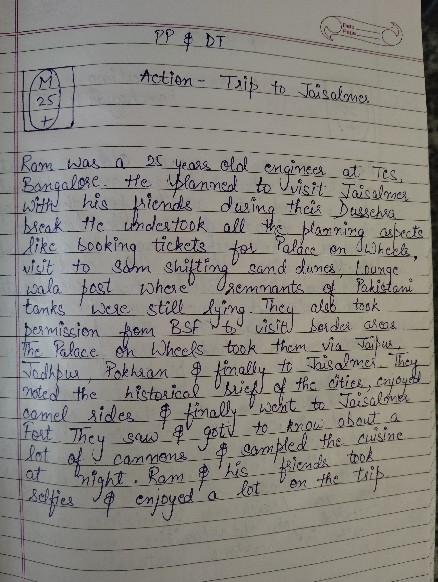 PP & DT
M
25
+
Action - Trip to Jaisalmer
Ram was a 25 years old engineer at TCS,
Bangalore. He planned to visit Jaisalmer
with his friends during their Dussehra
break He undertook all the planning aspects
like booking tickets for Palace on Wheels,
visit to Sam shifting sand dunes, Lounge
wala post where remnants of Pakistani
tanks were still lying. They also took
permission from BSF to visit border areas
The Palace on Wheels took them via Jaipur,
Jodhpur, Pokhran & finally to Jaisalmer. They
noted the historical brief of the cities, enjoyed
camel rides & finally went to Jaisalmer
Fort They saw & got to know about a
lot of cannons & sampled the cuisine
at night. Ram & his friends took
selfies & enjoyed a lot on the trip